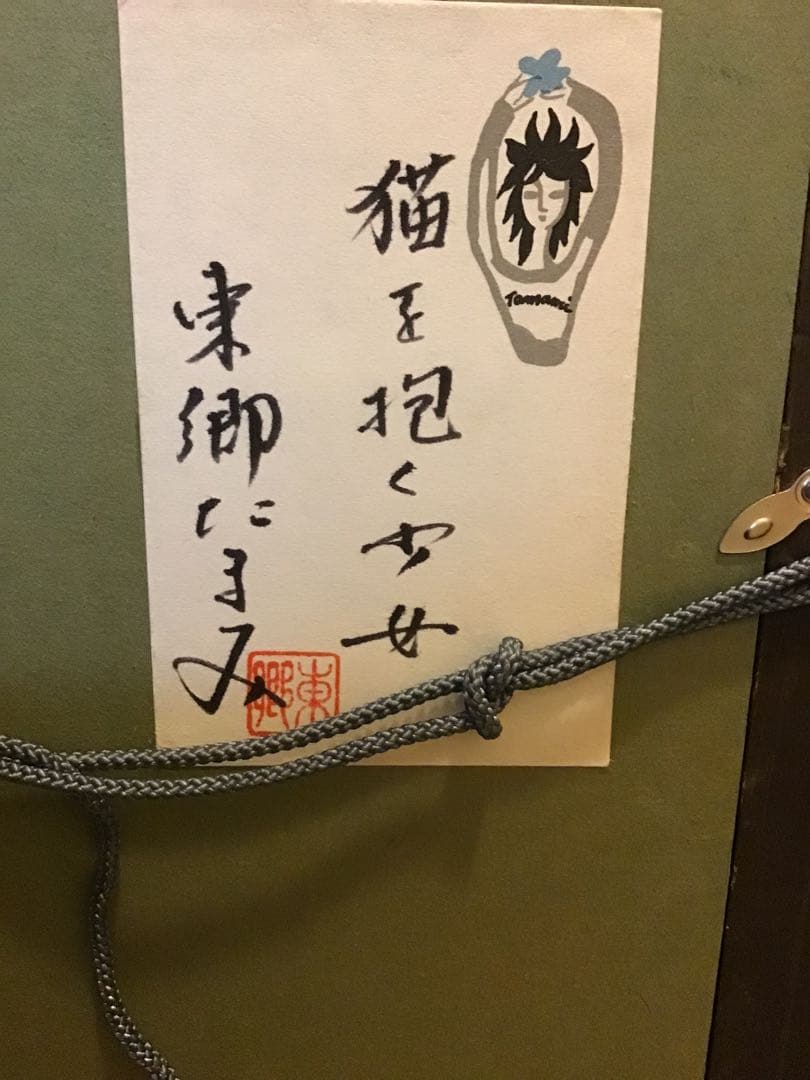 Tamami
猫を抱く少女
東郷たまみ
東郷